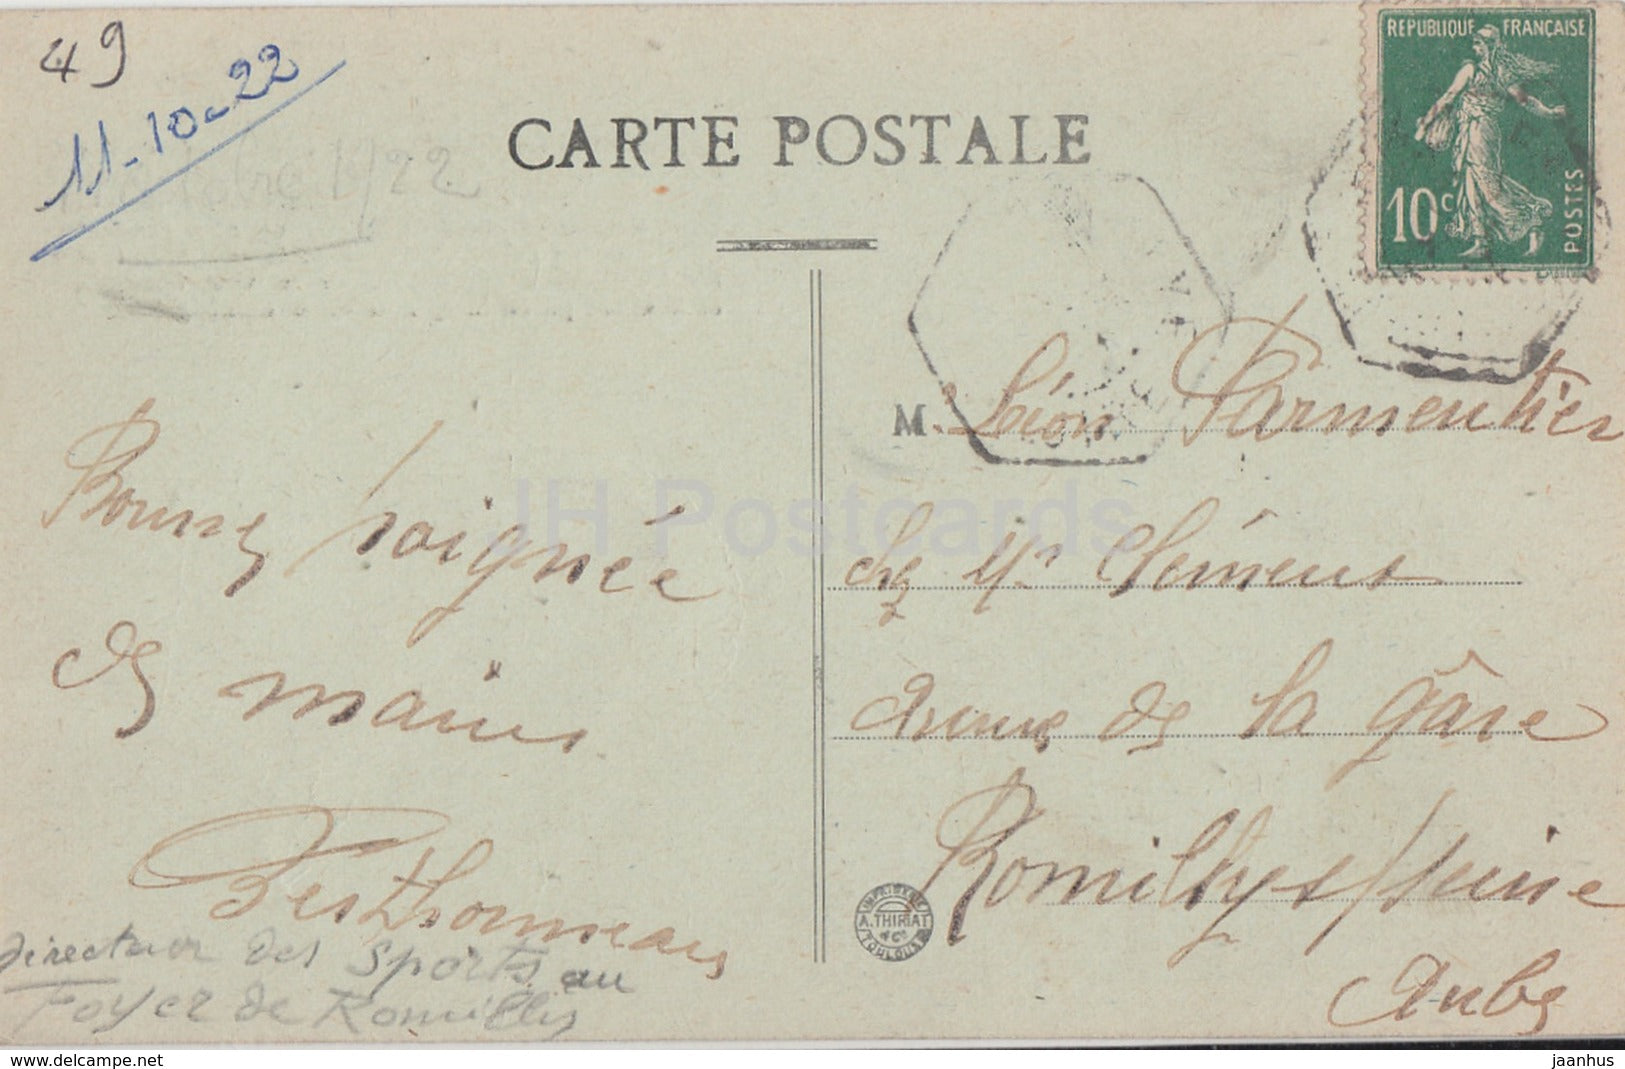 49
11-10-22
CARTE POSTALE
REPUBLIQUE FRANÇAISE
10c
POSTES
M. Léon Parmentier
chez Mr Clément
Avenue de la gâre
Romilly s/ Seine
Aube
Bonne poignée
de mains
Berthonneau
directeur des sports au
Foyer de Romilly
IMPRIMERIE
A. THIRIAT
& Cie
TOULOUSE
JH Postcards
www.delcampe.net
jaanhus